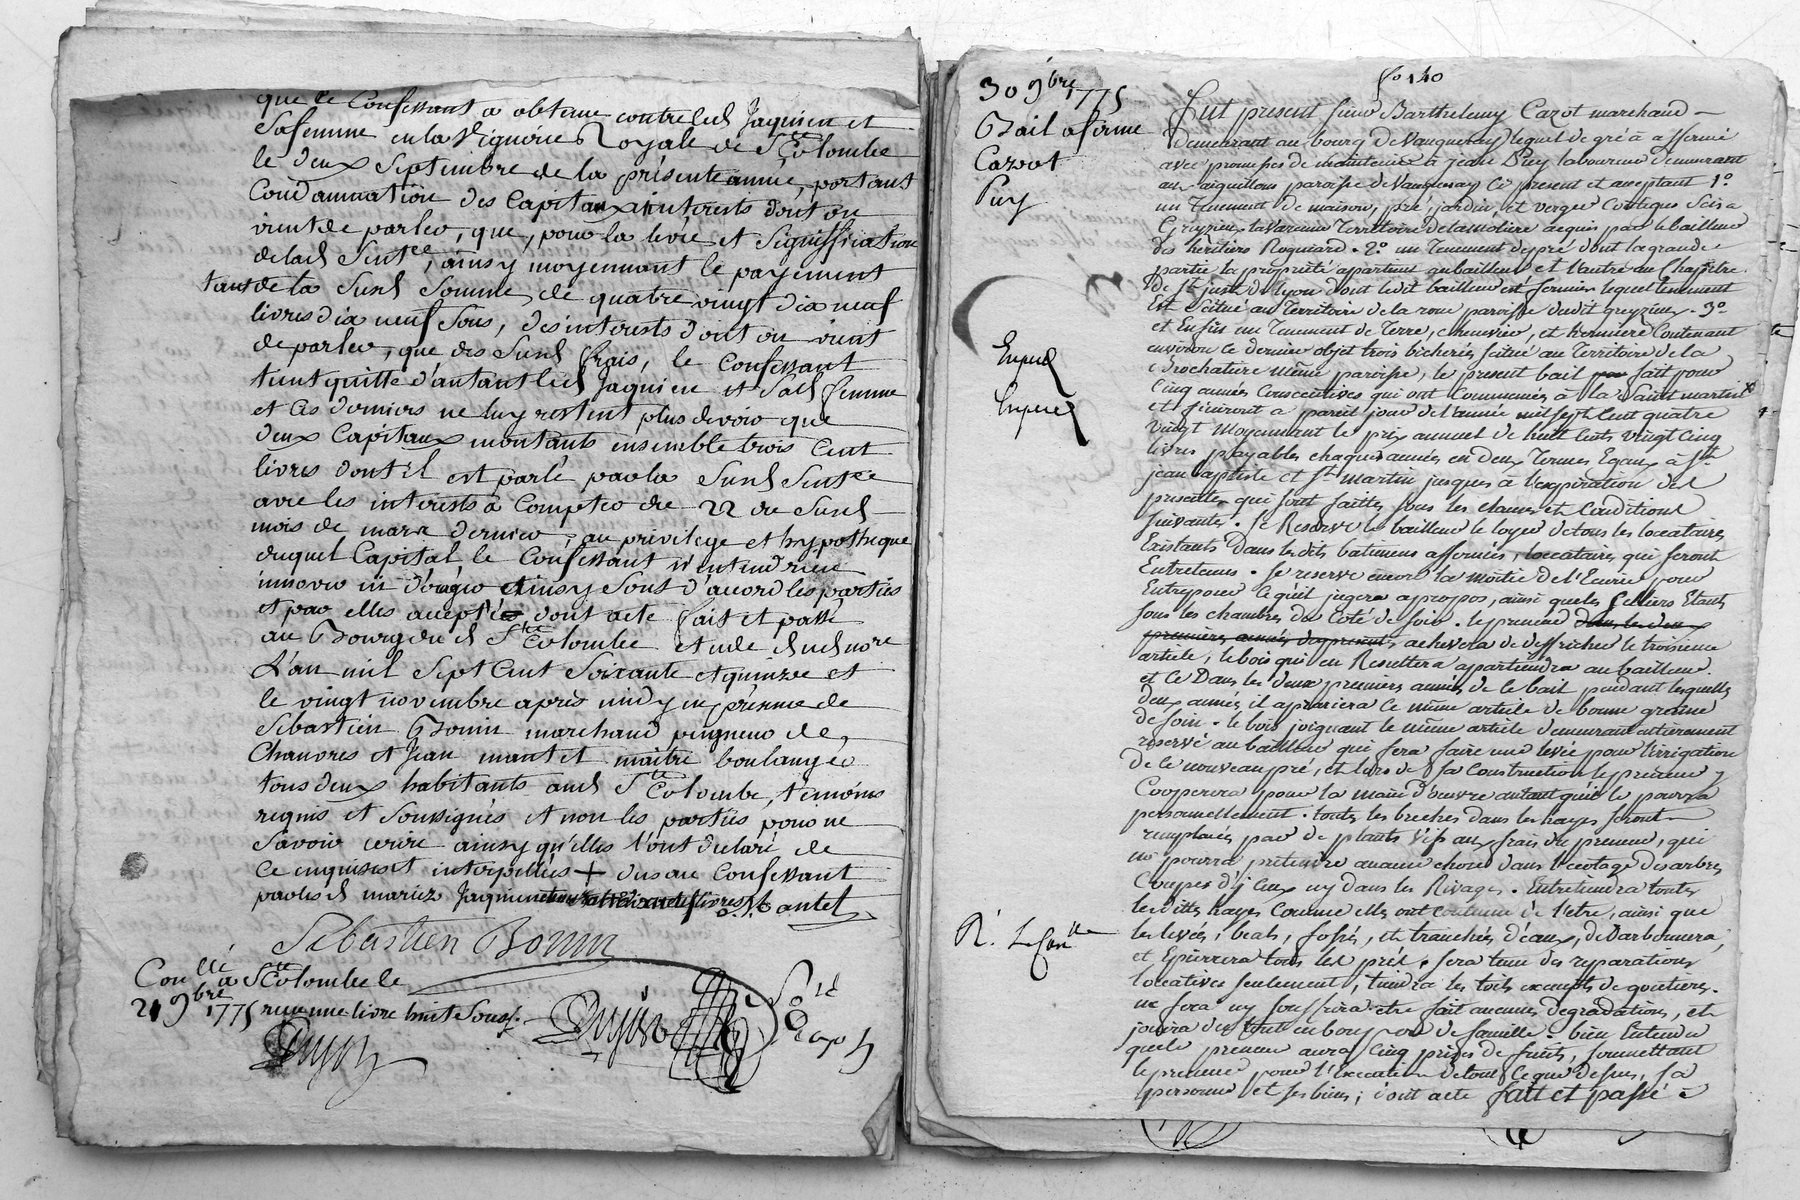 que le Confessant a obtenu contre lesd Jaquien et
Sa femme en la Viguerie Royale de Ste Colombe
le deux Septembre de la présente année, portant
Condamnation des Capitaux interests dont on
vient de parler, que, pour la levée et Signiffication
de lad Sentce, ainsy moyennant le payement
tant de la Susd Somme de quatre vingt dix neuf
livres dix neuf Sous, des interests dont on vient
de parler, que des Susd frais, le Confessant
tient quitte d'autant lesd Jaquien et Sad femme
et Ces derniers ne luy restent plus devoir que
deux Capitaux montants ensemble trois Cent
livres dont il est parlé par la Susd Sentce
avec les interests à Compter du 22 du Susd
mois de mars dernier, au privilege et hypotheque
duquel Capital, le Confessant n'entend rien
innover ni déroger ainsy Sont d'acord les parties
et par elles accepté dont acte fait et passé
au Bourg dud Ste Colombe etude dud nore
L'an mil Sept Cent Soixante et quinze et
le vingt novembre après midy en présence de
Sébastien Bonin marchand peigneur de
Chanvres et Jean mantet maitre boulanger
tous deux habitants aud Ste Colombe, témoins
requis et Soussignés et non les parties pour ne
Savoir écrire ainsy qu'elles l'ont déclaré de
Ce enquises et interpellées + dus au Confessant
par lesd mariez Jaquien Mantet
Sebastien Bonin
Conllé à Ste Colombe le
21 9bre 1775 reçu une livre huit Sous
Dujon
Dujon
30 9bre 1775
Bail a ferme
Cazot
Puy
fo 140
Fut present sieur Barthelemy Cazot marchand
demeurant au bourg de Vaugneray lequel de gré a affermé
avec promesses de maintenir à jean Puy laboureur demeurant
aux aiguillons paroisse de Vaugneray Ci present et acceptant 1o
un Tenement de maison, pré, jardin, et verger Contigus Scis a
Greyzieu la Varenne Territoire de la moliere acquis par le bailleur
des heritiers Rognard. 2o un Tenement de pré dont la grande
partie la propriété appartient au bailleur et l'autre au Chapitre
de St just de Lyon dont ledit bailleur est fermier lequel tenement
Est Scitué au Territoire de la roue paroisse dudit greyzieu. 3o
et Enfin un Tenement de Terre, cheneviere, et hermiere Contenant
environ Ce dernier objet trois bicherés scitué au Territoire de la
Brochature même paroisse, le present bail fait pour
Cinq années Consecutives qui ont Commencés à la Saint martin
et finiront a pareil jour de l'année mil sept Cent quatre
vingt moyennant le prix annuel de huit Cents vingt Cinq
livres payables chaques années en deux Termes Egaux à St
jean baptiste et St martin jusques à l'expiration des
presentes qui sont faittes sous les clauses et Conditions
suivantes. Se Reserve le bailleur le loyer de tous les locataires
Existants dans lesdits batimens affermés, locataires qui seront
Entretenus. Se reserve encore la moitié de l'Ecurie pour
Entreposer Ce qu'il jugera a propos, ainsi que les Celliers Etants
sous les chambres du Coté de soir. le preneur dans les deux
premieres années du present, achevera de deffricher le troisieme
article, le bois qui en Resultera appartiendra au bailleur.
et Ce Dans les deux premieres années de Ce bail pendant lesquelles
deux années il appraiera Ce même article de bonne graine
de foin. le bois joignant le même article demeurant entierement
reservé au bailleur qui fera faire une levée pour l'irrigation
de Ce nouveau pré, et lors de sa Construction le preneur y
Cooperera pour la main d'œuvre autant qu'il le pourra
personnellement. toutes les breches dans les hayes seront
remplacées par de plants Vifs aux frais du preneur, qui
ne pourra pretendre aucune chose dans l'ecotage des arbres
Coupes d'jceux ny dans les Rivages. Entretiendra toutes
lesdittes hayes Comme elles ont coutume de l'etre, ainsi que
les levées, beals, fossés, et tranchées d'eaux,
et Epierrera tous les prés. Sera tenu des reparations
locatives seulement, tiendra les toits exempts de goutieres.
ne fera ny souffrira etre fait aucunes degradations, et
jouira du tout en bon pere de famille. bien Entendu
que le preneur aura Cinq prises de fruits, soumettant
le preneur pour l'Execution de tout Ce que dessus, sa
personne et ses biens; dont acte fait et passé à
Expedié
Expedié